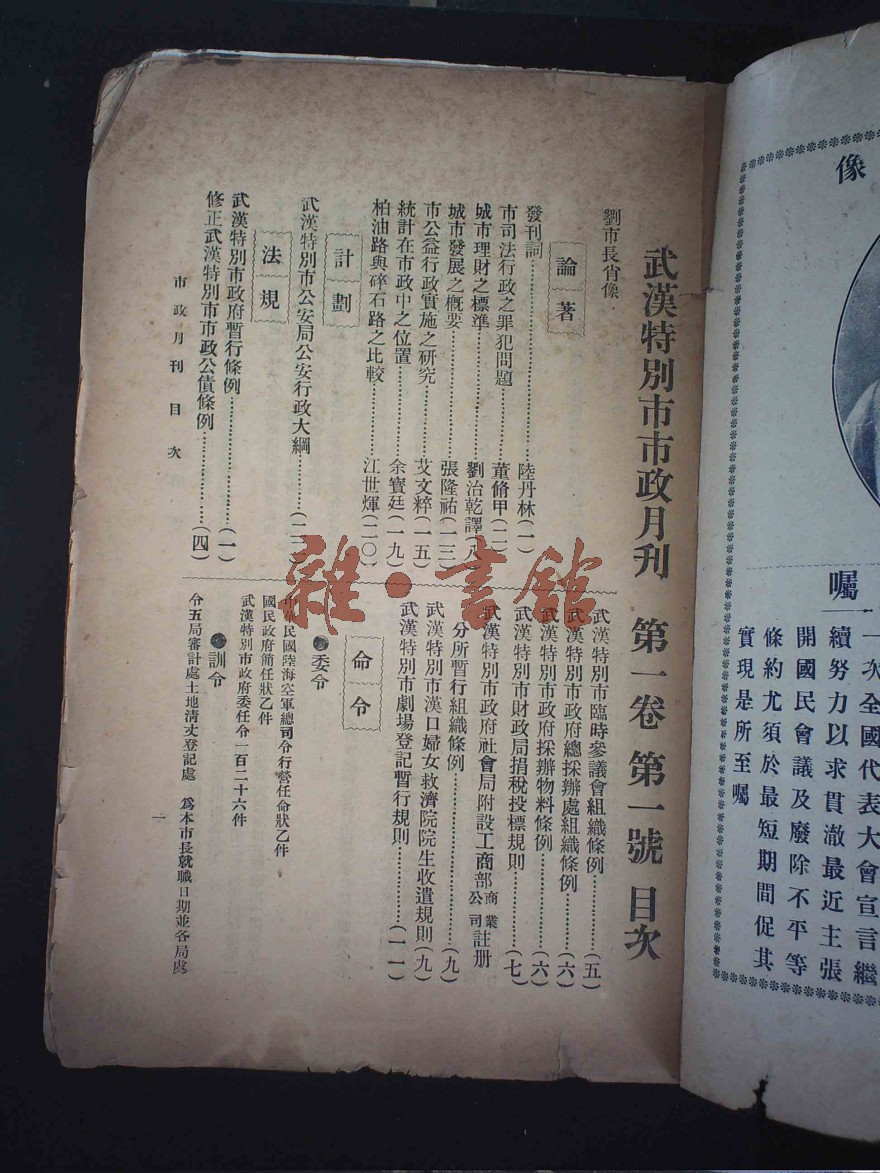 像
囑
一次全國代表大會宣言繼
續努力以求貫澈最近主張
開國民會議及廢除不平等
條約尤須於最短期間促其
實現是所至囑
武漢特別市市政月刊 第一卷 第一號 目次
劉市長肖像
論著
發刊詞……陸丹林(一)
市司法行政之罪犯問題……董脩甲(二)
城市理財之標準……劉治乾譯(八)
城市發展之概要……張隆祐(一三)
市公益行政實施之研究……艾文粹(一五)
統計在市政中之位置……余寶廷(一九)
柏油路與碎石路之比較……江世煇(二〇)
計劃
武漢特別市公安局公安行政大綱……(一)
法規
武漢特別市政府暫行條例……(一)
修正武漢特別市市政公債條例……(四)
武漢特別市臨時參議會組織條例……(五)
武漢特別市政府總採辦處組織條例……(六)
武漢特別市政府採辦物料條例……(六)
武漢特別市財政局捐稅投標規則……(七)
武漢特別市政府社會局附設工商部商業公司註册
分所暫行組織條例……(九)
武漢特別市漢口婦女救濟院院生收遣規則(九)
武漢特別市劇場登記暫行規則……(一一)
命令
●委令
中華民國陸海空軍總司令行營任命狀乙件
國民政府簡任狀乙件
武漢特別市政府委任令一百二十六件
●訓令
令五局審計處土地清丈登記處 爲本市長就職日期並各局處
市政月刊目次
一
雜·書館